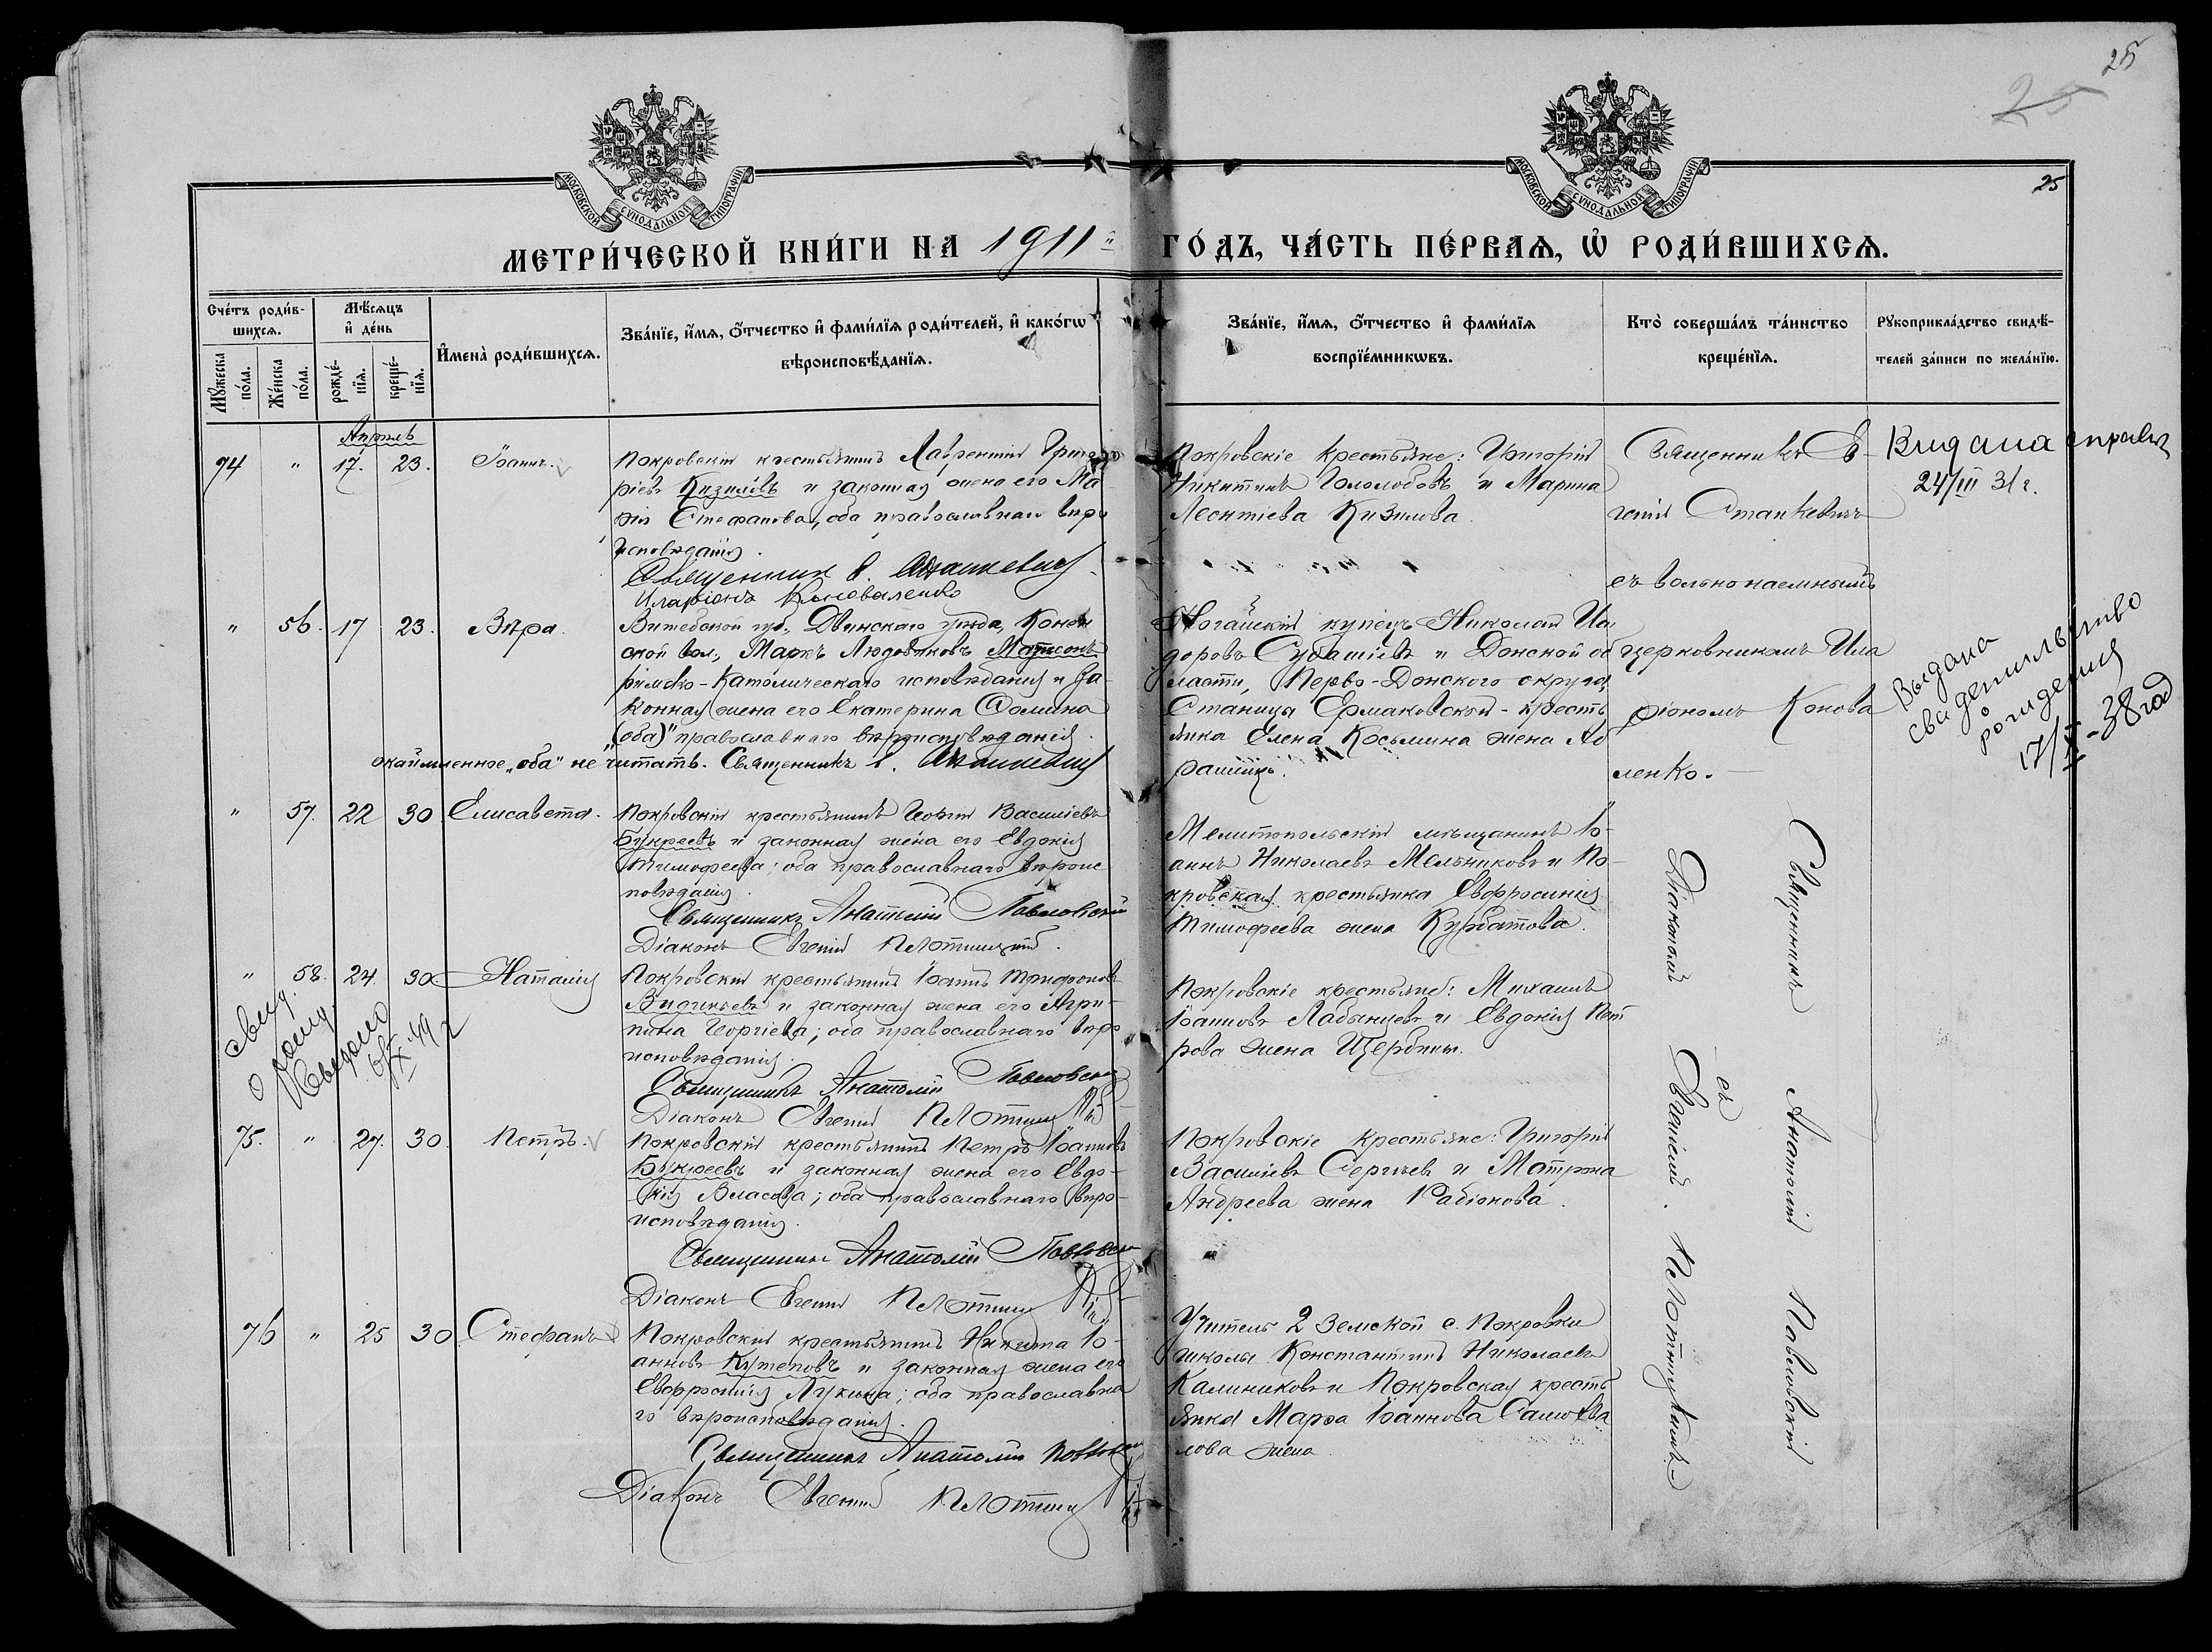 25
25
25
МОСКОВСКОЙ СУНОДАЛЬНОЙ ТИПОГРАФІИ
МОСКОВСКОЙ СУНОДАЛЬНОЙ ТИПОГРАФІИ
МЕТРИ́ЧЕСКОЙ КНИ́ГИ НА 1911 ГО́ДЪ, ЧА́СТЬ ПЕ́РВАЯ, Ѡ РОДИ́ВШИХСЯ.
Сче́тъ роди́в-
шихся.
Мꙋ́жеска
по́ла.
Же́нска
по́ла.
Мѣ́сяцъ
и҆ де́нь
рожде́-
нїя.
креще́-
нїя.
И҆мена̀ роди́вшихся.
Зва́нїе, и҆́мя, ѻ҆́тчество и҆ фами́лїя роди́телей, и҆ како́гѡ
вѣроисповѣ́данїя.
Зва́нїе, и҆́мя, ѻ҆́тчество и҆ фами́лїя
воспрїе́мникѡвъ.
Кто̀ соверша́лъ та́инство
креще́нїя.
Рꙋкоприкла́дство свидѣ́-
телей за́писи по жела́нїю.
Апрѣль
74 " 17. 23. Іоаннъ.
Покровскій крестьянинъ Лаврентій Григо-
ріевъ Кизиловъ и законная жена его Ма-
рія Стефанова, оба православнаго вѣро
исповѣданія.
Священник В. Станкевичъ
Иларіонъ Коноваленко
Покровскіе крестьяне: Григорій
Никитинъ Голомобовъ и Марина
Леонтіева Кизилова.
Священникъ Ев-
геній Станкевичъ
съ вольнонаемнымъ
церковникомъ Ила
ріономъ Конова
ленко.
Видана справка
24/III 31 г.
" 56. 17 23. Вѣра.
Витебской губ., Двинскаго уѣзда,
ской вол., Маркъ Людовиковъ Матисонъ
римско-католическаго исповѣданія и за-
конная жена его Екатерина Фомина
(оба)" православнаго вѣроисповѣданія.
окаймленное "оба" не читать. Священникъ Е. Станкевичъ
Ногайскій купецъ Николай
доровъ Субашіевъ и Донской об
ласти, Перво-Донского округа,
Станицы Ермаковской - кресть
янка Елена Косьмина жена Аб
рамецъ.
Выдана
свидетильство
о
рождения
17/X-38 год
" 57. 22 30 Елисавета.
Покровскій крестьянинъ Георгій Василіевъ
Букреевъ и законная жена его Евдокія
Тимофеева; оба православнаго вѣроис
повѣданія.
Священникъ Анатолій Павловскій
Діаконъ Евгеній
Мелитопольскій мѣщанинъ Іо-
аннъ Николаевъ Мельниковъ и По-
кровская крестьянка Евфросинія
Тимофеева жена Курбатова.
Священникъ Анатолій Павловскій
Діакономъ Евгеніемъ
съ
" 58. 24. 30. Наталія
Покровскій крестьянинъ Іоаннъ Трифоновъ
и законная жена его Агри-
пина Георгіева; оба православнаго вѣро
исповѣданія.
Священникъ Анатолій Павловскій
Діаконъ Евгеній
Покровскіе крестьяне: Михаилъ
Іоанновъ Лабынцевъ и Евдокія Пет
рова жена Щербины.
свид.
о рожд.
49 г
75. " 27. 30. Петръ.
Покровскій крестьянинъ Петръ Іоанновъ
Букреевъ и законная жена его Евдо-
кія Власова; оба православнаго вѣро-
исповѣданія.
Священникъ Анатолій Павловскій
Діаконъ Евгеній
Покровскіе крестьяне: Григорій
Василіевъ Сергѣевъ и Матрона
Андреева жена Радіонова.
76 " 25 30 Стефанъ
Покровскій крестьянинъ Никита Іо-
анновъ Кутеповъ и законная жена его
Евфросинія Лукина; оба православна
го вѣроисповѣданія.
Священникъ Анатолій Павловскій
Діаконъ Евгеній
Учитель 2 Земской с. Покровки
школы Константинъ Николаевъ
Калиниковъ и Покровская кресть
янка Марѳа Іоаннова Самохва
лова жена